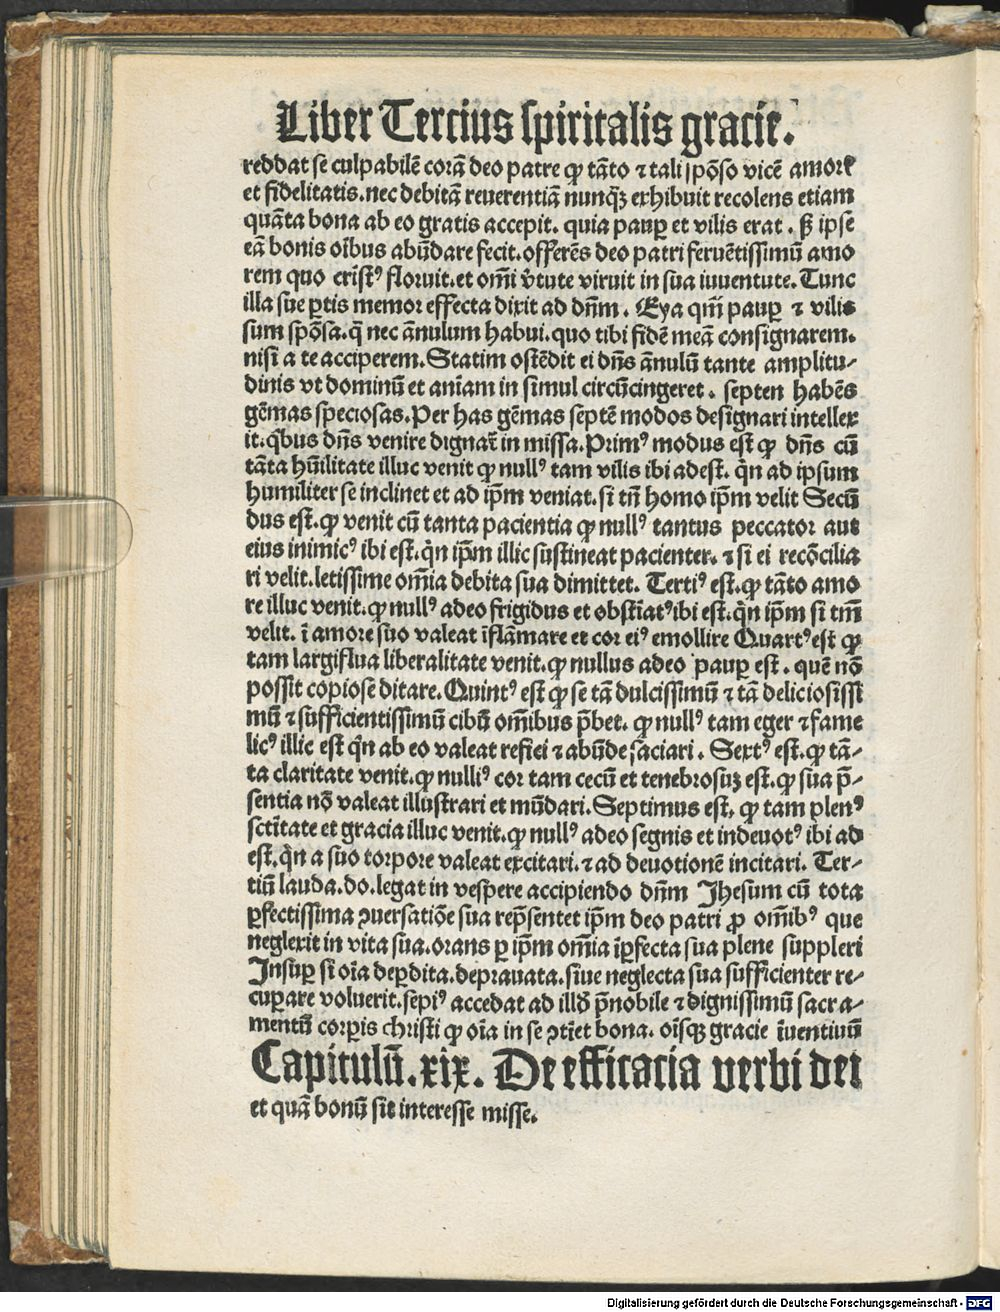 Liber Tercius spiritalis gracie.
reddat se culpabilē corā deo patre ꝙ tāto ⁊ tali spōso vicē amoris
et fidelitatis. nec debitā reuerentiā nunq̄ꝫ exhibuit recolens etiam
quāta bona ab eo gratis accepit. quia paup̱ et vilis erat. ß ipse
eā bonis oībus abūdare fecit. offerēs deo patri feruētissimū amo
rem quo cristꝰ floruit. et om̄i v̄tute viruit in sua iuuentute. Tunc
illa sue ꝑtis memor effecta dixit ad dn̄m. Eya qm̄ paup̱ ⁊ vilis
sum spōsa. q̄ nec ānulum habui. quo tibi fidē meā consignarem.
nisi a te acciperem. Statim ostēdit ei dn̄s ānulū tante amplitu⸗
dinis vt dominū et aīam in simul circūcingeret. septen habēs
gēmas speciosas. Per has gēmas septē modos designari intellex
it. qͥbus dn̄s venire dignat̄ in missa. Primꝰ modus est ꝙ dn̄s cū
tāta hūilitate illuc venit ꝙ nullꝰ tam vilis ibi adest. qͥn ad ipsum
humiliter se inclinet et ad ip̄m veniat. si tn̄ homo ip̄m velit Secū
dus est. ꝙ venit cū tanta pacientia ꝙ nullꝰ tantus peccator aut
eius inimicꝰ ibi est. qͥn ip̄m illic sustineat pacienter. ⁊ si ei recōcilia
ri velit. letissime om̄ia debita sua dimittet. Tertiꝰ est. ꝙ tāto amo
re illuc venit. ꝙ nullꝰ adeo frigidus et obstīatꝰ ibi est. qͥn ip̄m si tm̄
velit. ī amore suo valeat īflāmare et cor eiꝰ emollire Quartꝰ est ꝙ
tam largiflua liberalitate venit. ꝙ nullus adeo paup̱ est. quē nō
possit copiose ditare. Quintꝰ est ꝙ se tā dulcissimū ⁊ tā deliciosissi
mū ⁊ sufficientissimū cibū om̄ibus p̄bet. ꝙ nullꝰ tam eger ⁊ fame
licꝰ illic est qͥn ab eo valeat refici ⁊ abūde saciari. Sextꝰ est. ꝙ tā⸗
ta claritate venit. ꝙ nulliꝰ cor tam cecū et tenebrosuꝫ est. ꝙ sua p̄⸗
sentia nō valeat illustrari et mūdari. Septimus est. ꝙ tam plenꝰ
sctītate et gracia illuc venit. ꝙ nullꝰ adeo segnis et indeuotꝰ ibi ad
est. qͥn a suo torpore valeat excitari. ⁊ ad deuotionē incitari. Ter⸗
tiū lauda. do. legat in vespere accipiendo dn̄m Jhesum cū tota
ꝑfectissima ꝯuersatiōe sua rep̄sentet ip̄m deo patri ꝓ om̄ibꝰ que
neglexit in vita sua. orans ꝑ ip̄m om̄ia īꝑfecta sua plene suppleri
Insuꝑ si oīa deꝑdita. deprauata. siue neglecta sua sufficienter re⸗
cuꝑare voluerit. sepiꝰ accedat ad illd̄ p̄nobile ⁊ dignissimū sacra⸗
mentū corꝑis christi ꝙ oīa in se ꝯtīet bona. oīsqꝫ gracie īuentiuū
Capitulū. xix. De efficacia verbi dei
et quā bonū sit interesse misse.
Digitalisierung gefördert durch die Deutsche Forschungsgemeinschaft - DFG